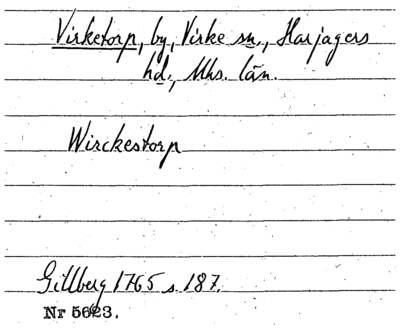 Virketorp, by, Virke sn., Harjagers
hd., Mhs. län.
Wirckestorp
Gillberg 1765 s. 187.
Nr 5623.